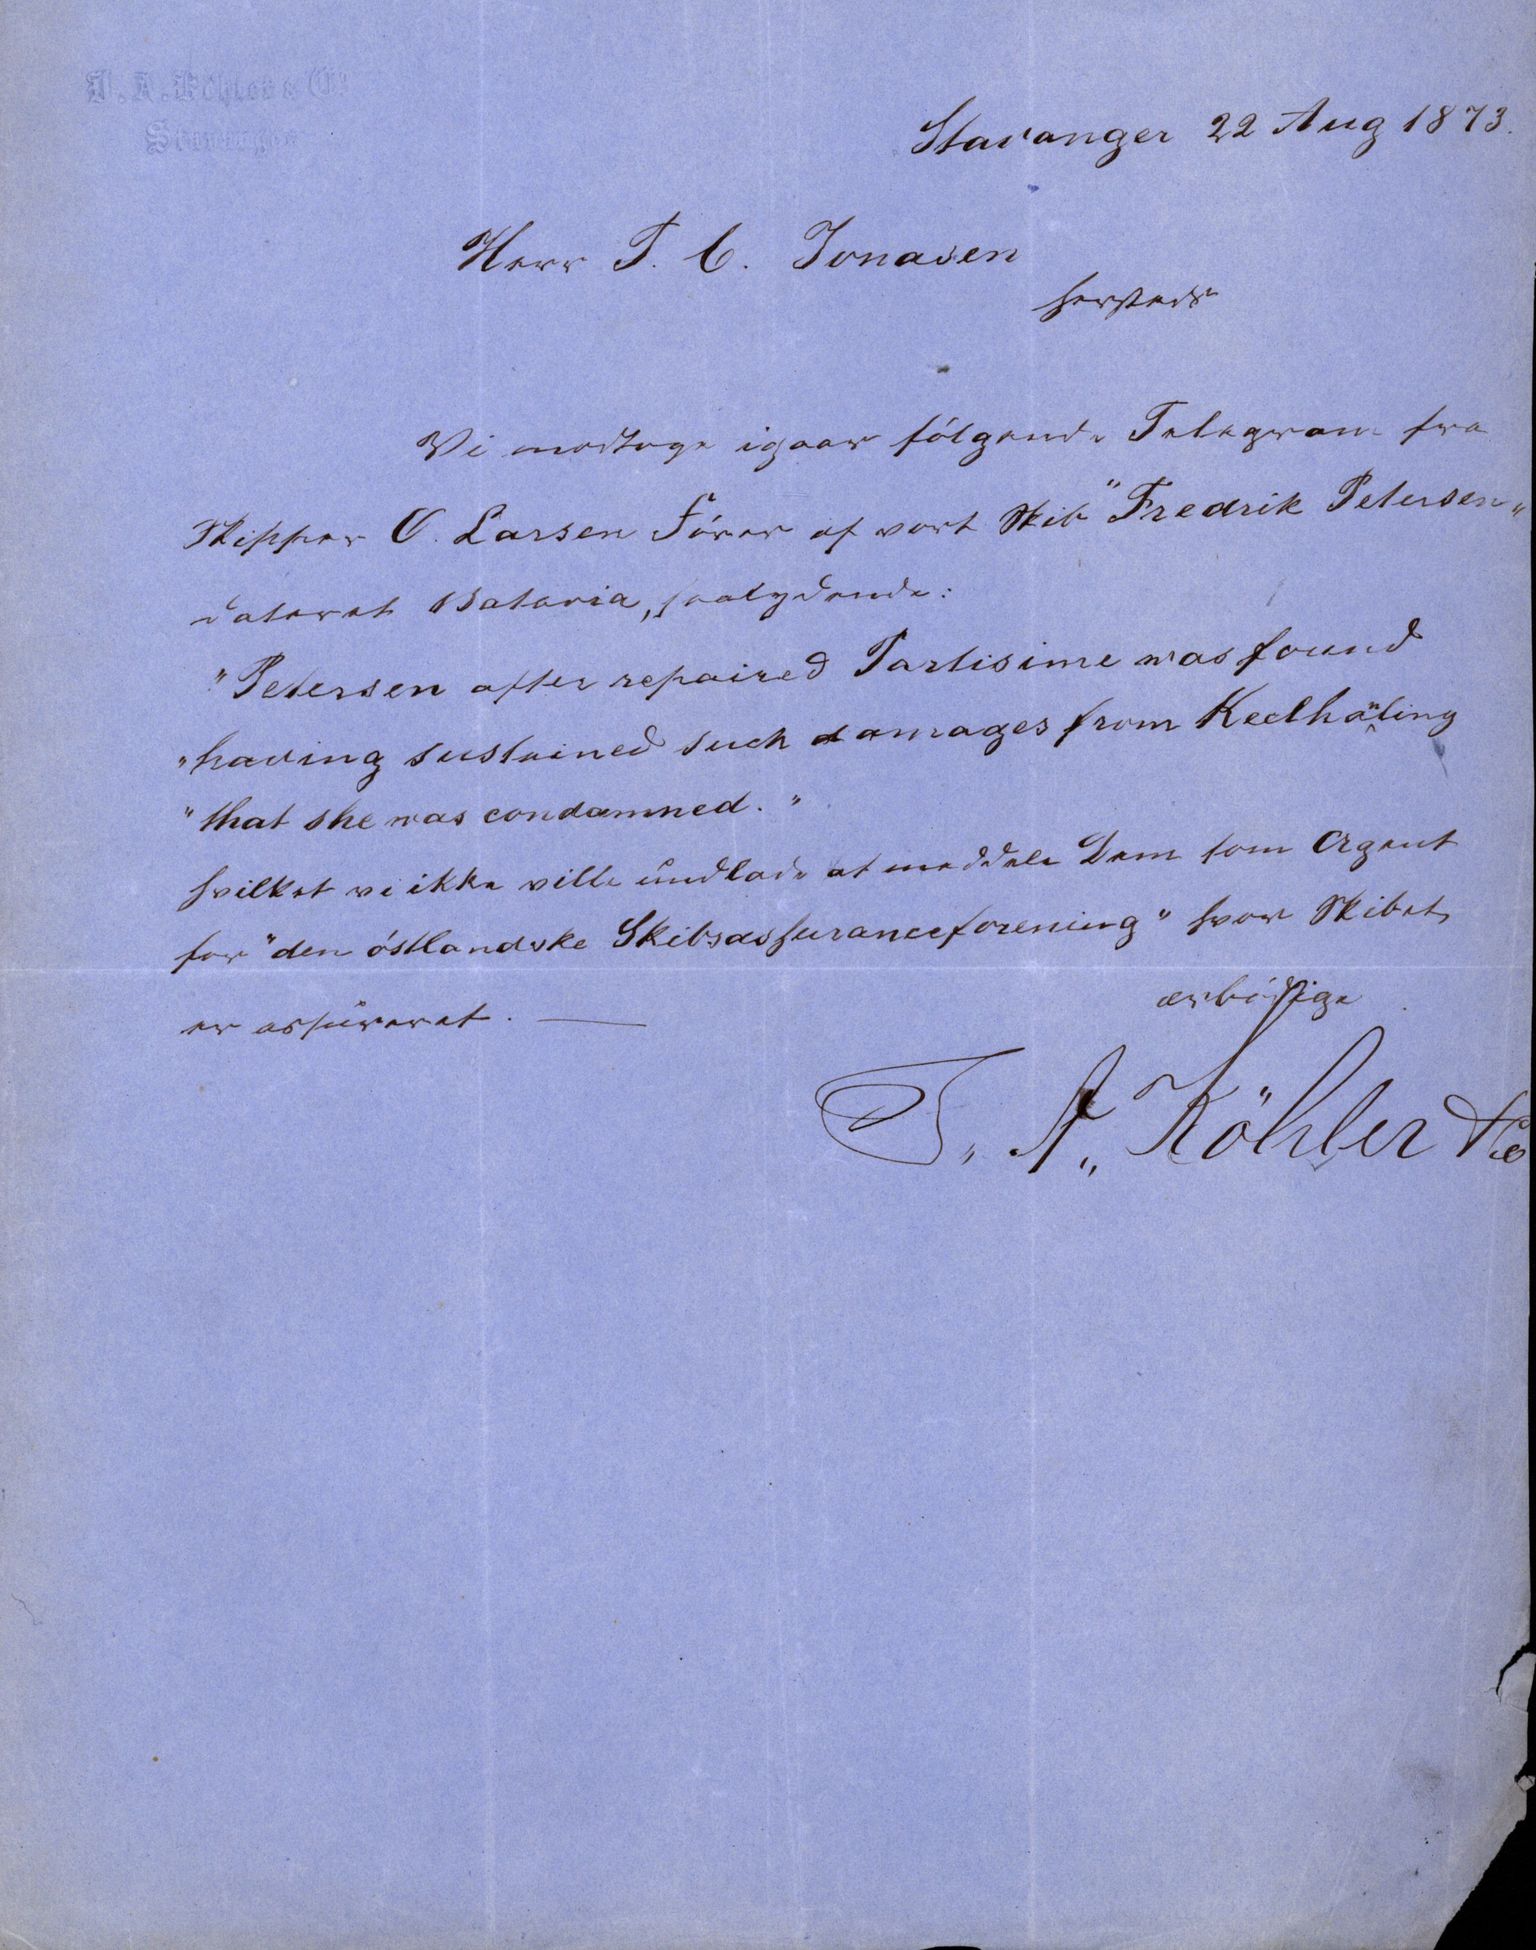 J. A. Köhler & Co
Stavanger
Stavanger 22 Aug 1873.
Herr T. C. Jonasen
hersteds
Vi modtoge igaar følgende Telegram fra
Skipper O. Larsen Fører af vort Skib "Fredrik Petersen"
dateret Batavia, saalydende:
"Petersen after repaired Partisime was found
"having sustained such damages from Keelhaling
"that she was condamned."
hvilket vi ikke ville undlade at meddele Dem som Agent
for "den östlandske Skibsassuranceforening" hvor Skibet
er assureret. —
ærbødige
T. A. Köhler & Co